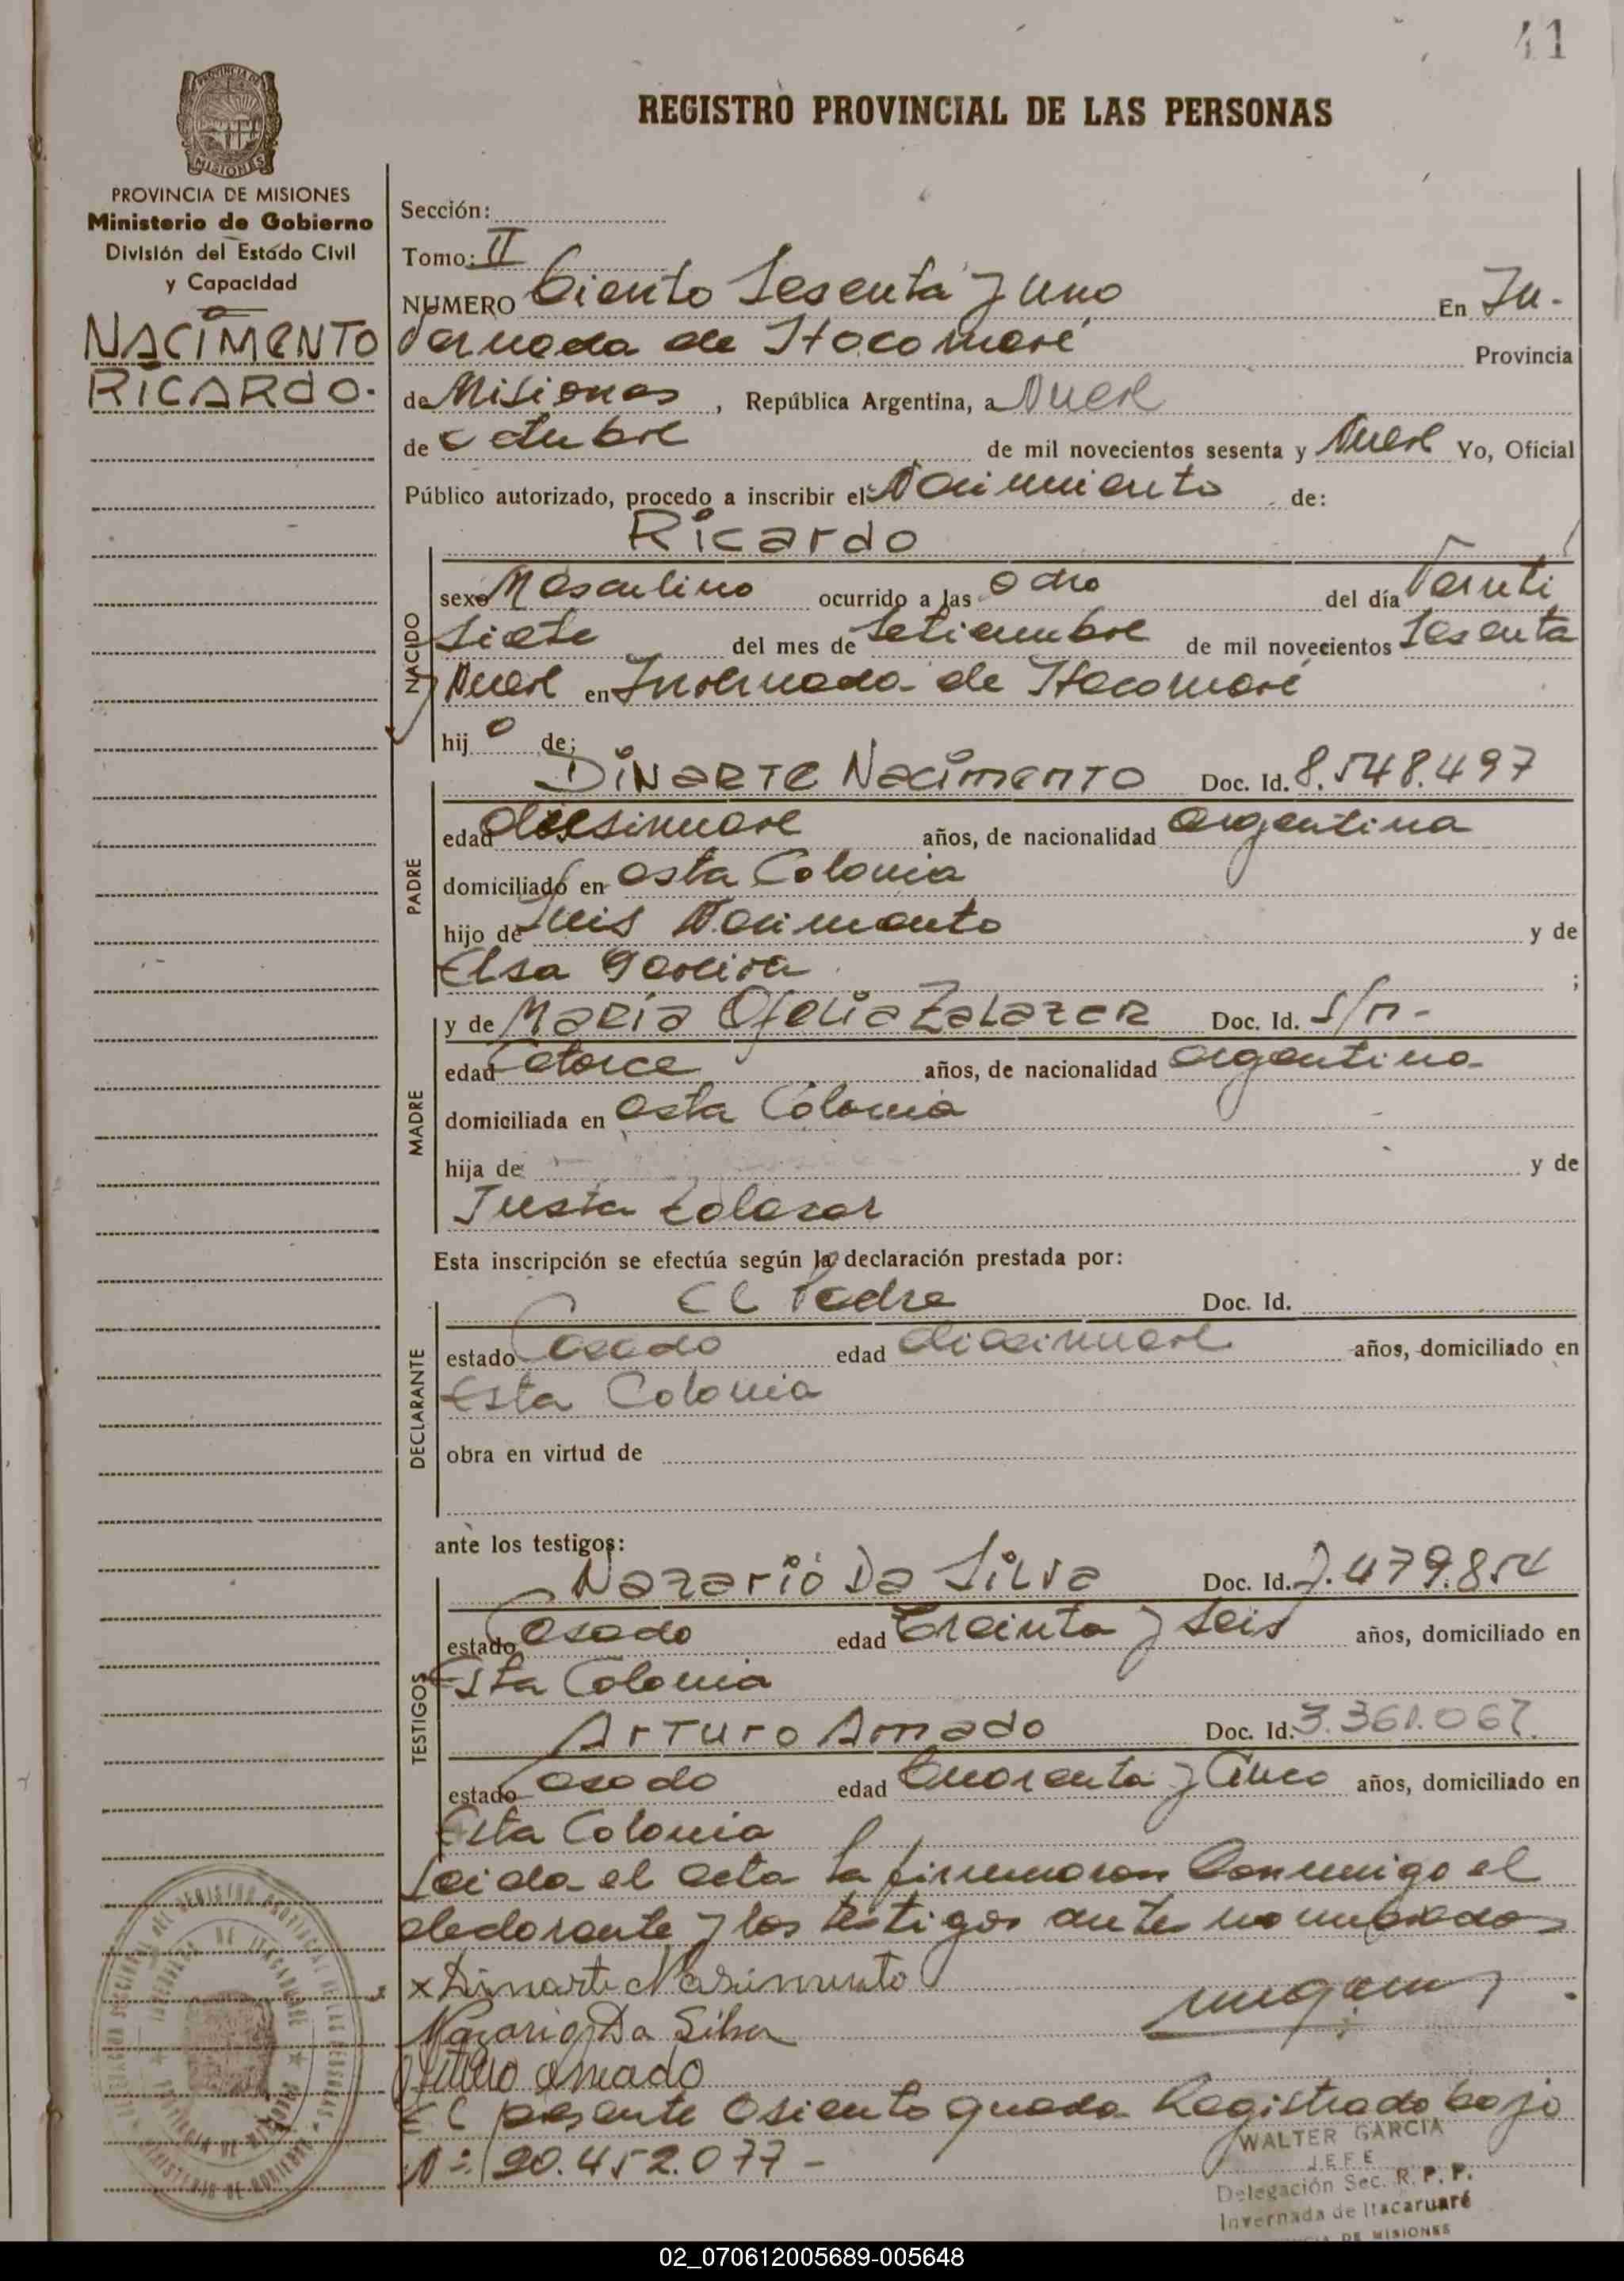 41
REGISTRO PROVINCIAL DE LAS PERSONAS
PROVINCIA DE
MISIONES
PROVINCIA DE MISIONES
Ministerio de Gobierno
División del Estado Civil
y Capacidad
NACIMENTO
RICARDO.
Sección:
Tomo: II
NUMERO Ciento Sesenta y Uno En In-
vernada de Itacaruaré Provincia
de Misiones, República Argentina, a Nueve
de octubre de mil novecientos sesenta y Nueve Yo, Oficial
Público autorizado, procedo a inscribir el Nacimiento de:
Ricardo
NACIDO
sexo Masculino ocurrido a las ocho del día Veinti
siete del mes de Setiembre de mil novecientos Sesenta
y Nueve en Invernada de Itacaruaré
hijo de:
PADRE
Dinarte Nacimento Doc. Id. 8.548.497
edad diesinueve años, de nacionalidad argentina
domiciliado en esta Colonia
hijo de Luis Nacimento y de
Elsa Pereira ;
MADRE
y de Maria Ofelia Zalazer Doc. Id. s/n-
edad catorce años, de nacionalidad argentina
domiciliada en esta Colonia
hija de y de
Justa Zalazar
Esta inscripción se efectúa según la declaración prestada por:
DECLARANTE
El Padre Doc. Id.
estado Casado edad diecinueve años, domiciliado en
Esta Colonia
obra en virtud de
ante los testigos:
TESTIGOS
Nazario Da Silva Doc. Id. 7.479.854
estado Casado edad treinta y seis años, domiciliado en
Esta Colonia
Arturo Amado Doc. Id. 3.361.067.
estado Casado edad Cuarenta y Cinco años, domiciliado en
Esta Colonia
Leida el acta la firmaron Conmigo el
declarante y los testigos antes nombrados
x Dinarte Nasimento
Nazario Da Silva
Arturo Amado
El presente asiento queda Registrado bajo
Nº: 20.452.077-
WALTER GARCIA
JEFE
Delegación Sec. R. P. P.
Invernada de Itacaruaré
DE MISIONES
02_070612005689-005648